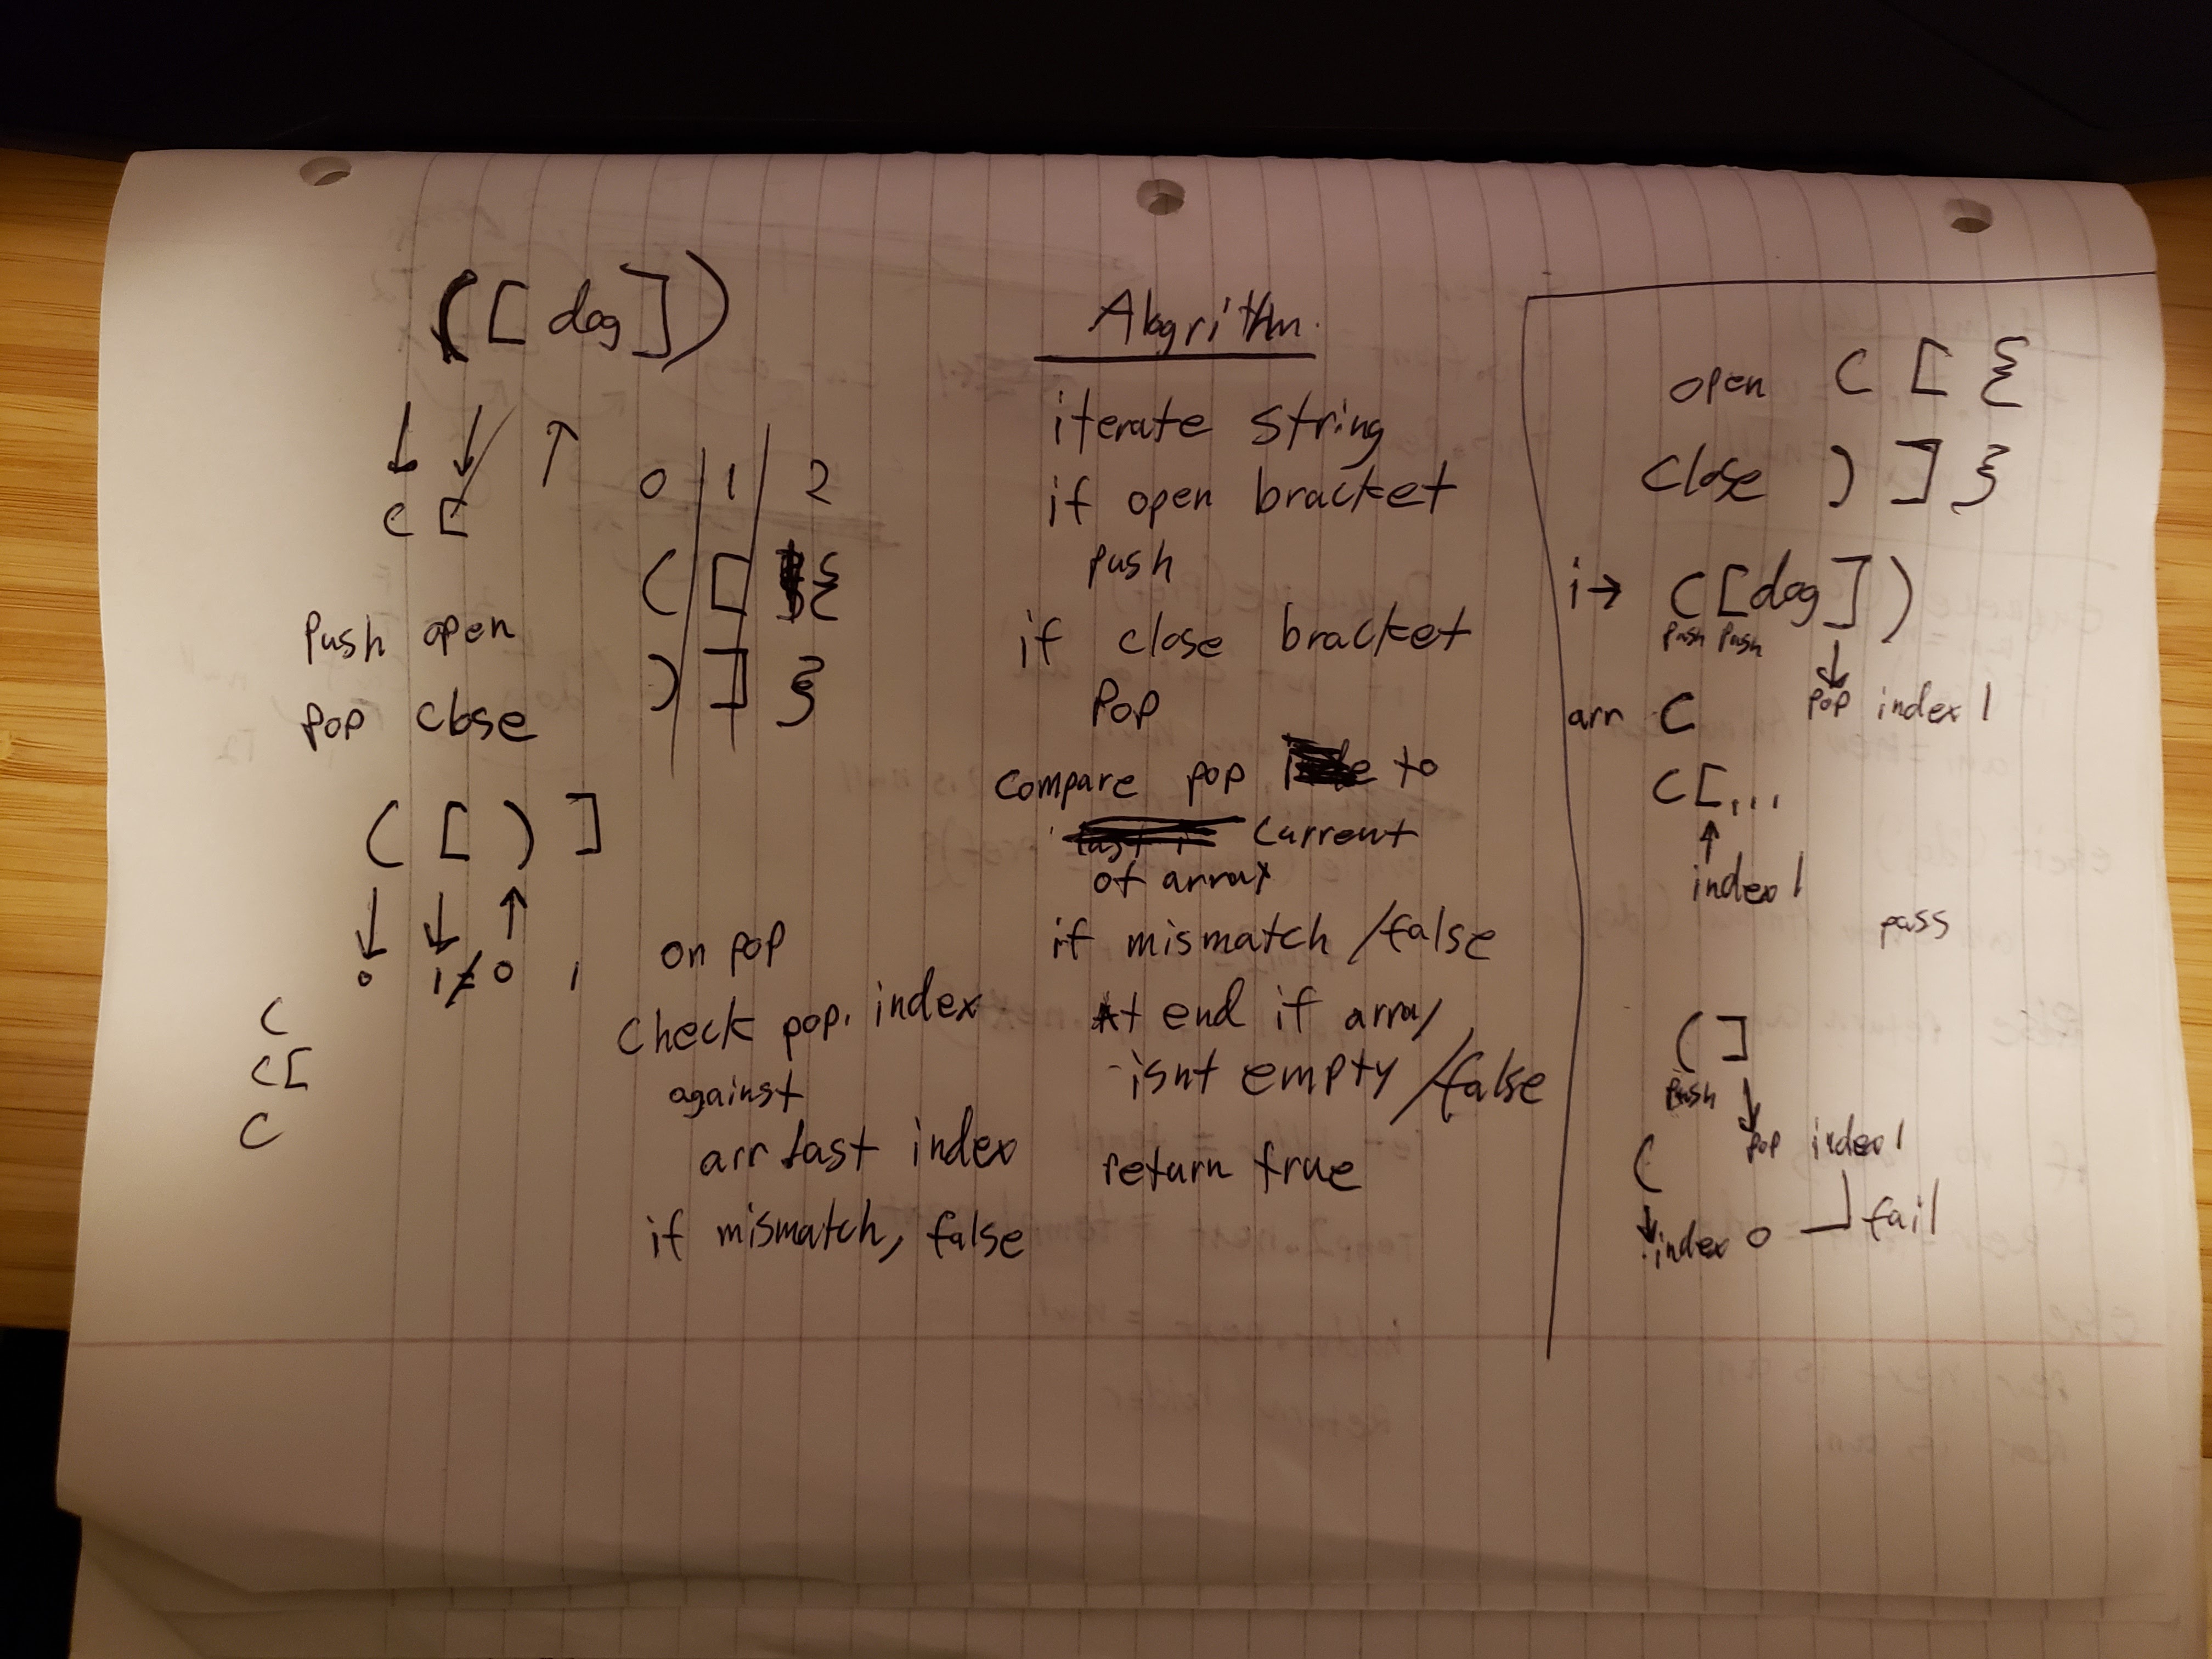 ([dog])
( [
0 1 2
( [ {
) ] }
Push open
pop close
( [ ) ]
0 1 ≠ 0 1
(
([
(
on pop
check pop. index
against
arr last index
if mismatch, false
Alogrithm.
iterate string
if open bracket
push
if close bracket
pop
compare pop to
current
of array
if mismatch /false
At end if array
isnt empty /false
return true
open ( [ {
close ) ] }
i→ ([dog])
push push
pop index 1
arr (
([...
index 1
pass
(]
push
pop index 1
(
index 0 fail